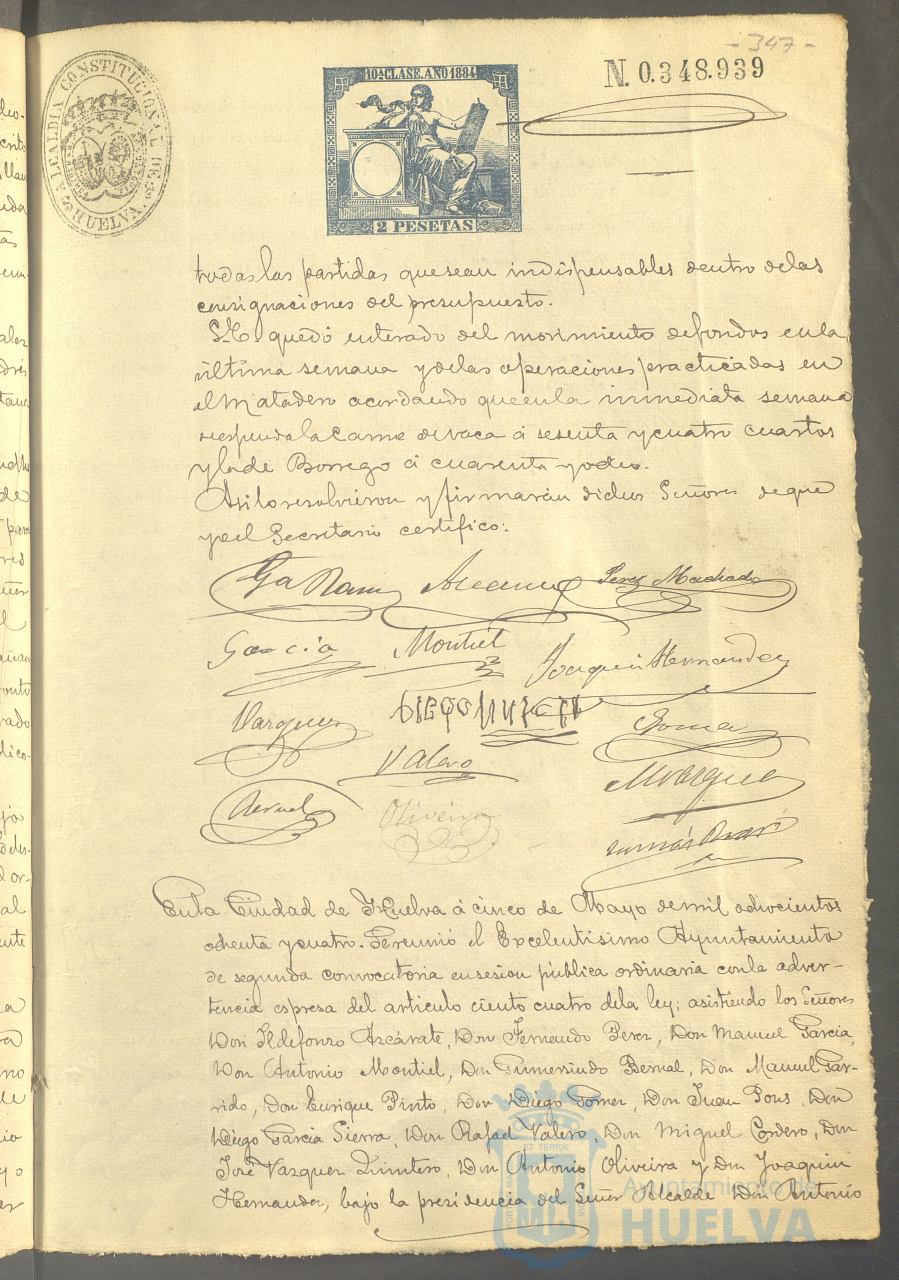 - 347 -
ALCALDIA CONSTITUCIONAL DE HUELVA.
10ª CLASE. AÑO 1884
2 PESETAS
N. 0.348.939
todas las partidas que sean indispensables dentro de las
consignaciones del presupuesto.
S.E. quedó enterado del movimiento de fondos en la
última semana y de las operaciones practicadas en
el Matadero acordando que en la inmediata semana
se espenda la carne de vaca á sesenta y cuatro cuartos
y la de Borrego á cuarenta y ocho.
Asi lo resolvieron y firmarán dichos Señores de que
yo el Secretario certifico.
Perez Machado
Garcia Montiel Joaquin Hernandez
Vazquez
Gomez
Valero
M Vazquez
Bernal Oliveira
En la Ciudad de Huelva á cinco de Mayo de mil ochocientos
ochenta y cuatro. Se reunió el Excelentisimo Ayuntamiento
de segunda convocatoria en sesion pública ordinaria con la adver-
tencia espresa del articulo ciento cuatro de la ley; asistiendo los Señores
Don Ildefonso Azcárate, Don Fernando Perez, Don Manuel Garcia,
Don Antonio Montiel, Don Gumersindo Bernal, Don Manuel Gar-
rido, Don Enrique Pinto, Don Diego Gomez, Don Juan Pons, Don
Diego Garcia Sierra, Don Rafael Valero, Don Miguel Cordero, Don
José Vazquez Quintero, Don Antonio Oliveira y Don Joaquin
Hernandez, bajo la presidencia del Señor Alcalde Don Antonio
Ayuntamiento de
HUELVA